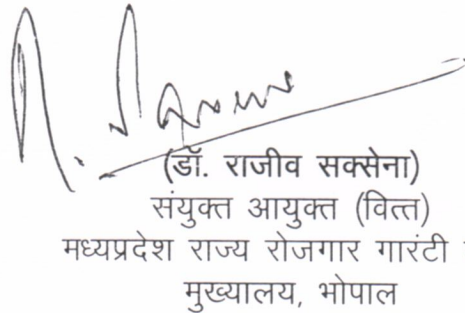 (डॉ. राजीव सक्सेना)
संयुक्त आयुक्त (वित्त)
मध्यप्रदेश राज्य रोजगार गारंटी
मुख्यालय, भोपाल